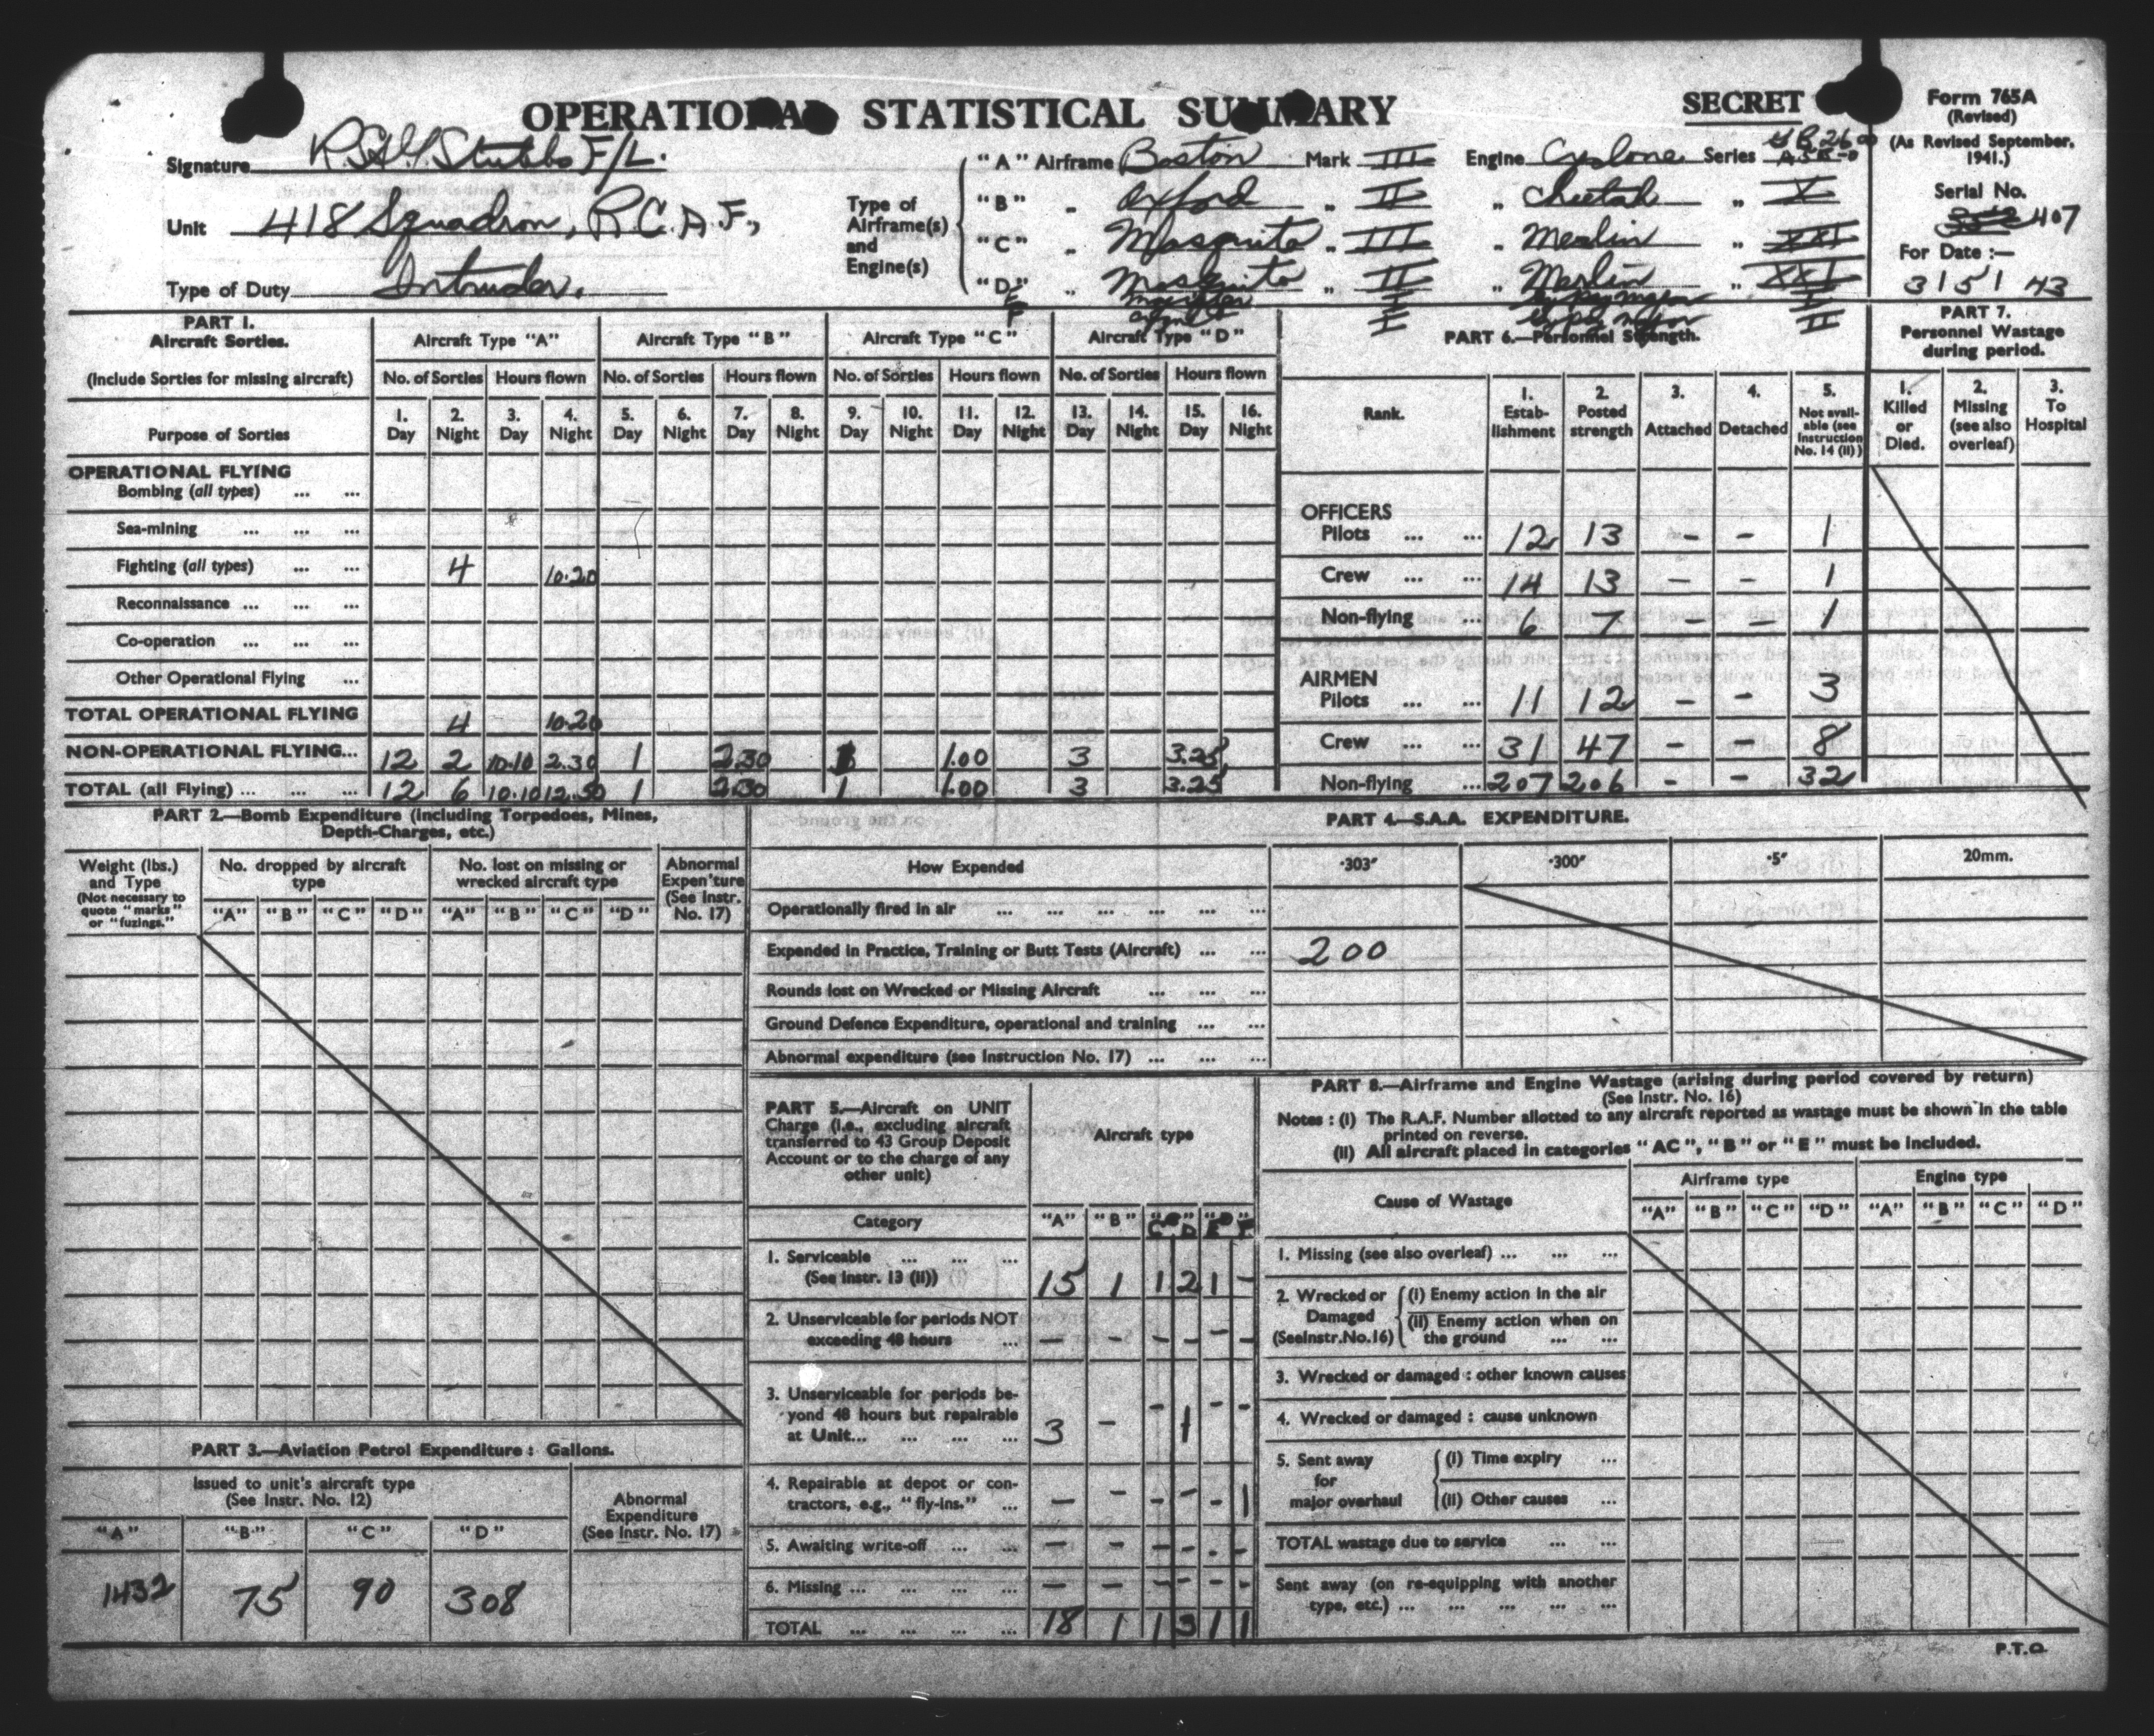 OPERATIONAL STATISTICAL SUMMARY
SECRET
Form 765A
(Revised)
(As Revised September, 1941.)
Signature R.S.H. Stubbs F/L.
Unit 418 Squadron, R.C.A.F.,
Type of Duty Intruder.
Type of Airframe(s) and Engine(s)
"A" Airframe Boston Mark III Engine Cyclone Series
"B" " Oxford " II " Cheetah " X
"C" " Mosquito " III " Merlin " XXI
"D" " Mosquito " II " Merlin " XXI
E Magister I Gypsy Major I
F I Gypsy Major II
Serial No.
407
For Date :—
31 5 43
PART 1.
Aircraft Sorties.
(Include Sorties for missing aircraft)
Aircraft Type "A" Aircraft Type "B" Aircraft Type "C" Aircraft Type "D"
No. of Sorties Hours flown No. of Sorties Hours flown No. of Sorties Hours flown No. of Sorties Hours flown
Purpose of Sorties
1. Day 2. Night 3. Day 4. Night 5. Day 6. Night 7. Day 8. Night 9. Day 10. Night 11. Day 12. Night 13. Day 14. Night 15. Day 16. Night
OPERATIONAL FLYING
Bombing (all types) ... ...
Sea-mining ... ... ...
Fighting (all types) ... ... 4 10.20
Reconnaissance ... ... ...
Co-operation ... ... ...
Other Operational Flying ...
TOTAL OPERATIONAL FLYING 4 10.20
NON-OPERATIONAL FLYING... 12 2 10.10 2.30 1 2.30 1 1.00 3 3.25
TOTAL (all Flying) ... ... ... 12 6 10.10 12.50 1 2.30 1 1.00 3 3.25
PART 6.—Personnel Strength.
Rank.
1. Establishment
2. Posted strength
3. Attached
4. Detached
5. Not available (see Instruction No. 14 (ii))
OFFICERS
Pilots ... ... 12 13 - - 1
Crew ... ... 14 13 - - 1
Non-flying ... 6 7 - - 1
AIRMEN
Pilots ... ... 11 12 - - 3
Crew ... ... 31 47 - - 8
Non-flying ... 207 206 - - 32
PART 7.
Personnel Wastage during period.
1. Killed or Died.
2. Missing (see also overleaf)
3. To Hospital
PART 2.—Bomb Expenditure (including Torpedoes, Mines, Depth-Charges, etc.)
Weight (lbs.) and Type
(Not necessary to quote "marks" or "fuzings.")
No. dropped by aircraft type
No. lost on missing or wrecked aircraft type
Abnormal Expen'ture (See Instr. No. 17)
"A" "B" "C" "D" "A" "B" "C" "D"
PART 3.—Aviation Petrol Expenditure : Gallons.
Issued to unit's aircraft type
(See Instr. No. 12)
Abnormal Expenditure
(See Instr. No. 17)
"A" "B" "C" "D"
1432 75 90 308
PART 4.—S.A.A. EXPENDITURE.
How Expended ·303" ·300" ·5" 20mm.
Operationally fired in air ... ... ... ... ... ...
Expended in Practice, Training or Butt Tests (Aircraft) ... ... 200
Rounds lost on Wrecked or Missing Aircraft ... ... ...
Ground Defence Expenditure, operational and training ... ...
Abnormal expenditure (see Instruction No. 17) ... ... ...
PART 5.—Aircraft on UNIT Charge (i.e., excluding aircraft transferred to 43 Group Deposit Account or to the charge of any other unit)
Aircraft type
Category "A" "B" C D E F
1. Serviceable ... ... ...
(See Instr. 13 (ii)) 15 1 1 2 1 -
2. Unserviceable for periods NOT exceeding 48 hours ... - - - - - -
3. Unserviceable for periods beyond 48 hours but repairable at Unit... ... ... ... 3 - - 1 - -
4. Repairable at depot or contractors, e.g., "fly-ins." ... - - - - - 1
5. Awaiting write-off ... ... - - - - - -
6. Missing ... ... ... ... - - - - - -
TOTAL ... ... ... ... 18 1 1 3 1 1
PART 8.—Airframe and Engine Wastage (arising during period covered by return)
(See Instr. No. 16)
Notes : (i) The R.A.F. Number allotted to any aircraft reported as wastage must be shown in the table printed on reverse.
(ii) All aircraft placed in categories "AC", "B" or "E" must be included.
Cause of Wastage
Airframe type Engine type
"A" "B" "C" "D" "A" "B" "C" "D"
1. Missing (see also overleaf) ... ... ...
2. Wrecked or Damaged (SeeInstr.No.16)
(i) Enemy action in the air
(ii) Enemy action when on the ground ... ...
3. Wrecked or damaged : other known causes
4. Wrecked or damaged : cause unknown
5. Sent away for major overhaul
(i) Time expiry ...
(ii) Other causes ...
TOTAL wastage due to service ... ...
Sent away (on re-equipping with another type, etc.) ... ... ... ... ...
P.T.O.